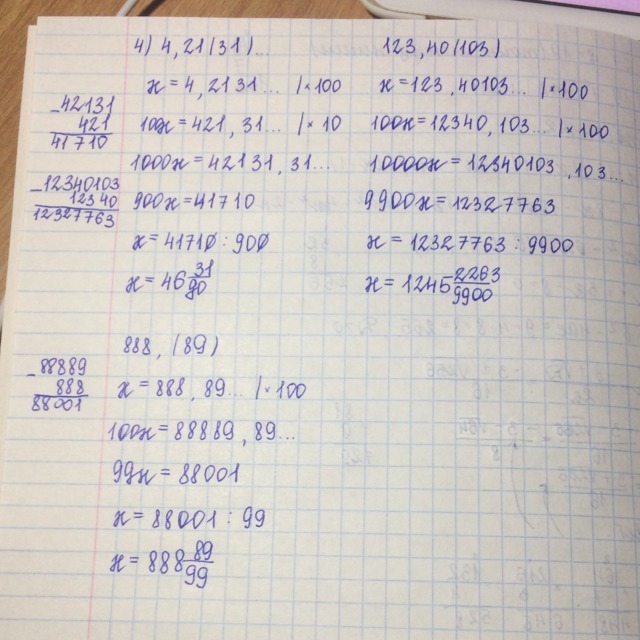 4) 4,21(31)...
x = 4,2131... |×100
100x = 421,31... |×10
1000x = 42131,31...
900x = 41710
x = 41710 : 900
x = 46 31/90
-42131
421
41710
-12340103
12340
12327763
123,40(103)
x = 123,40103... |×100
100x = 12340,103... |×100
10000x = 12340103,103...
9900x = 12327763
x = 12327763 : 9900
x = 1245 2263/9900
888,(89)
x = 888,89... |×100
100x = 88889,89...
99x = 88001
x = 88001 : 99
x = 888 89/99
-88889
888
88001